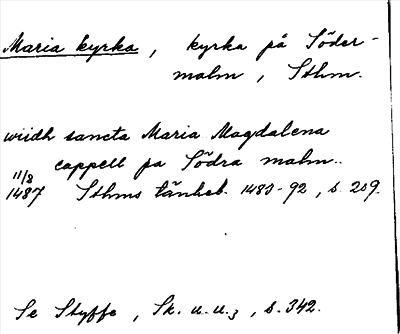 Maria kyrka, kyrka på Söder-
malm, Sthm.
wiidh sancta Maria Magdalena
cappell pa Södra malm..
11/8
1487 Sthms tänkeb. 1483-92, s. 209.
Se Styffe, Sk. u. u.3, s. 342.